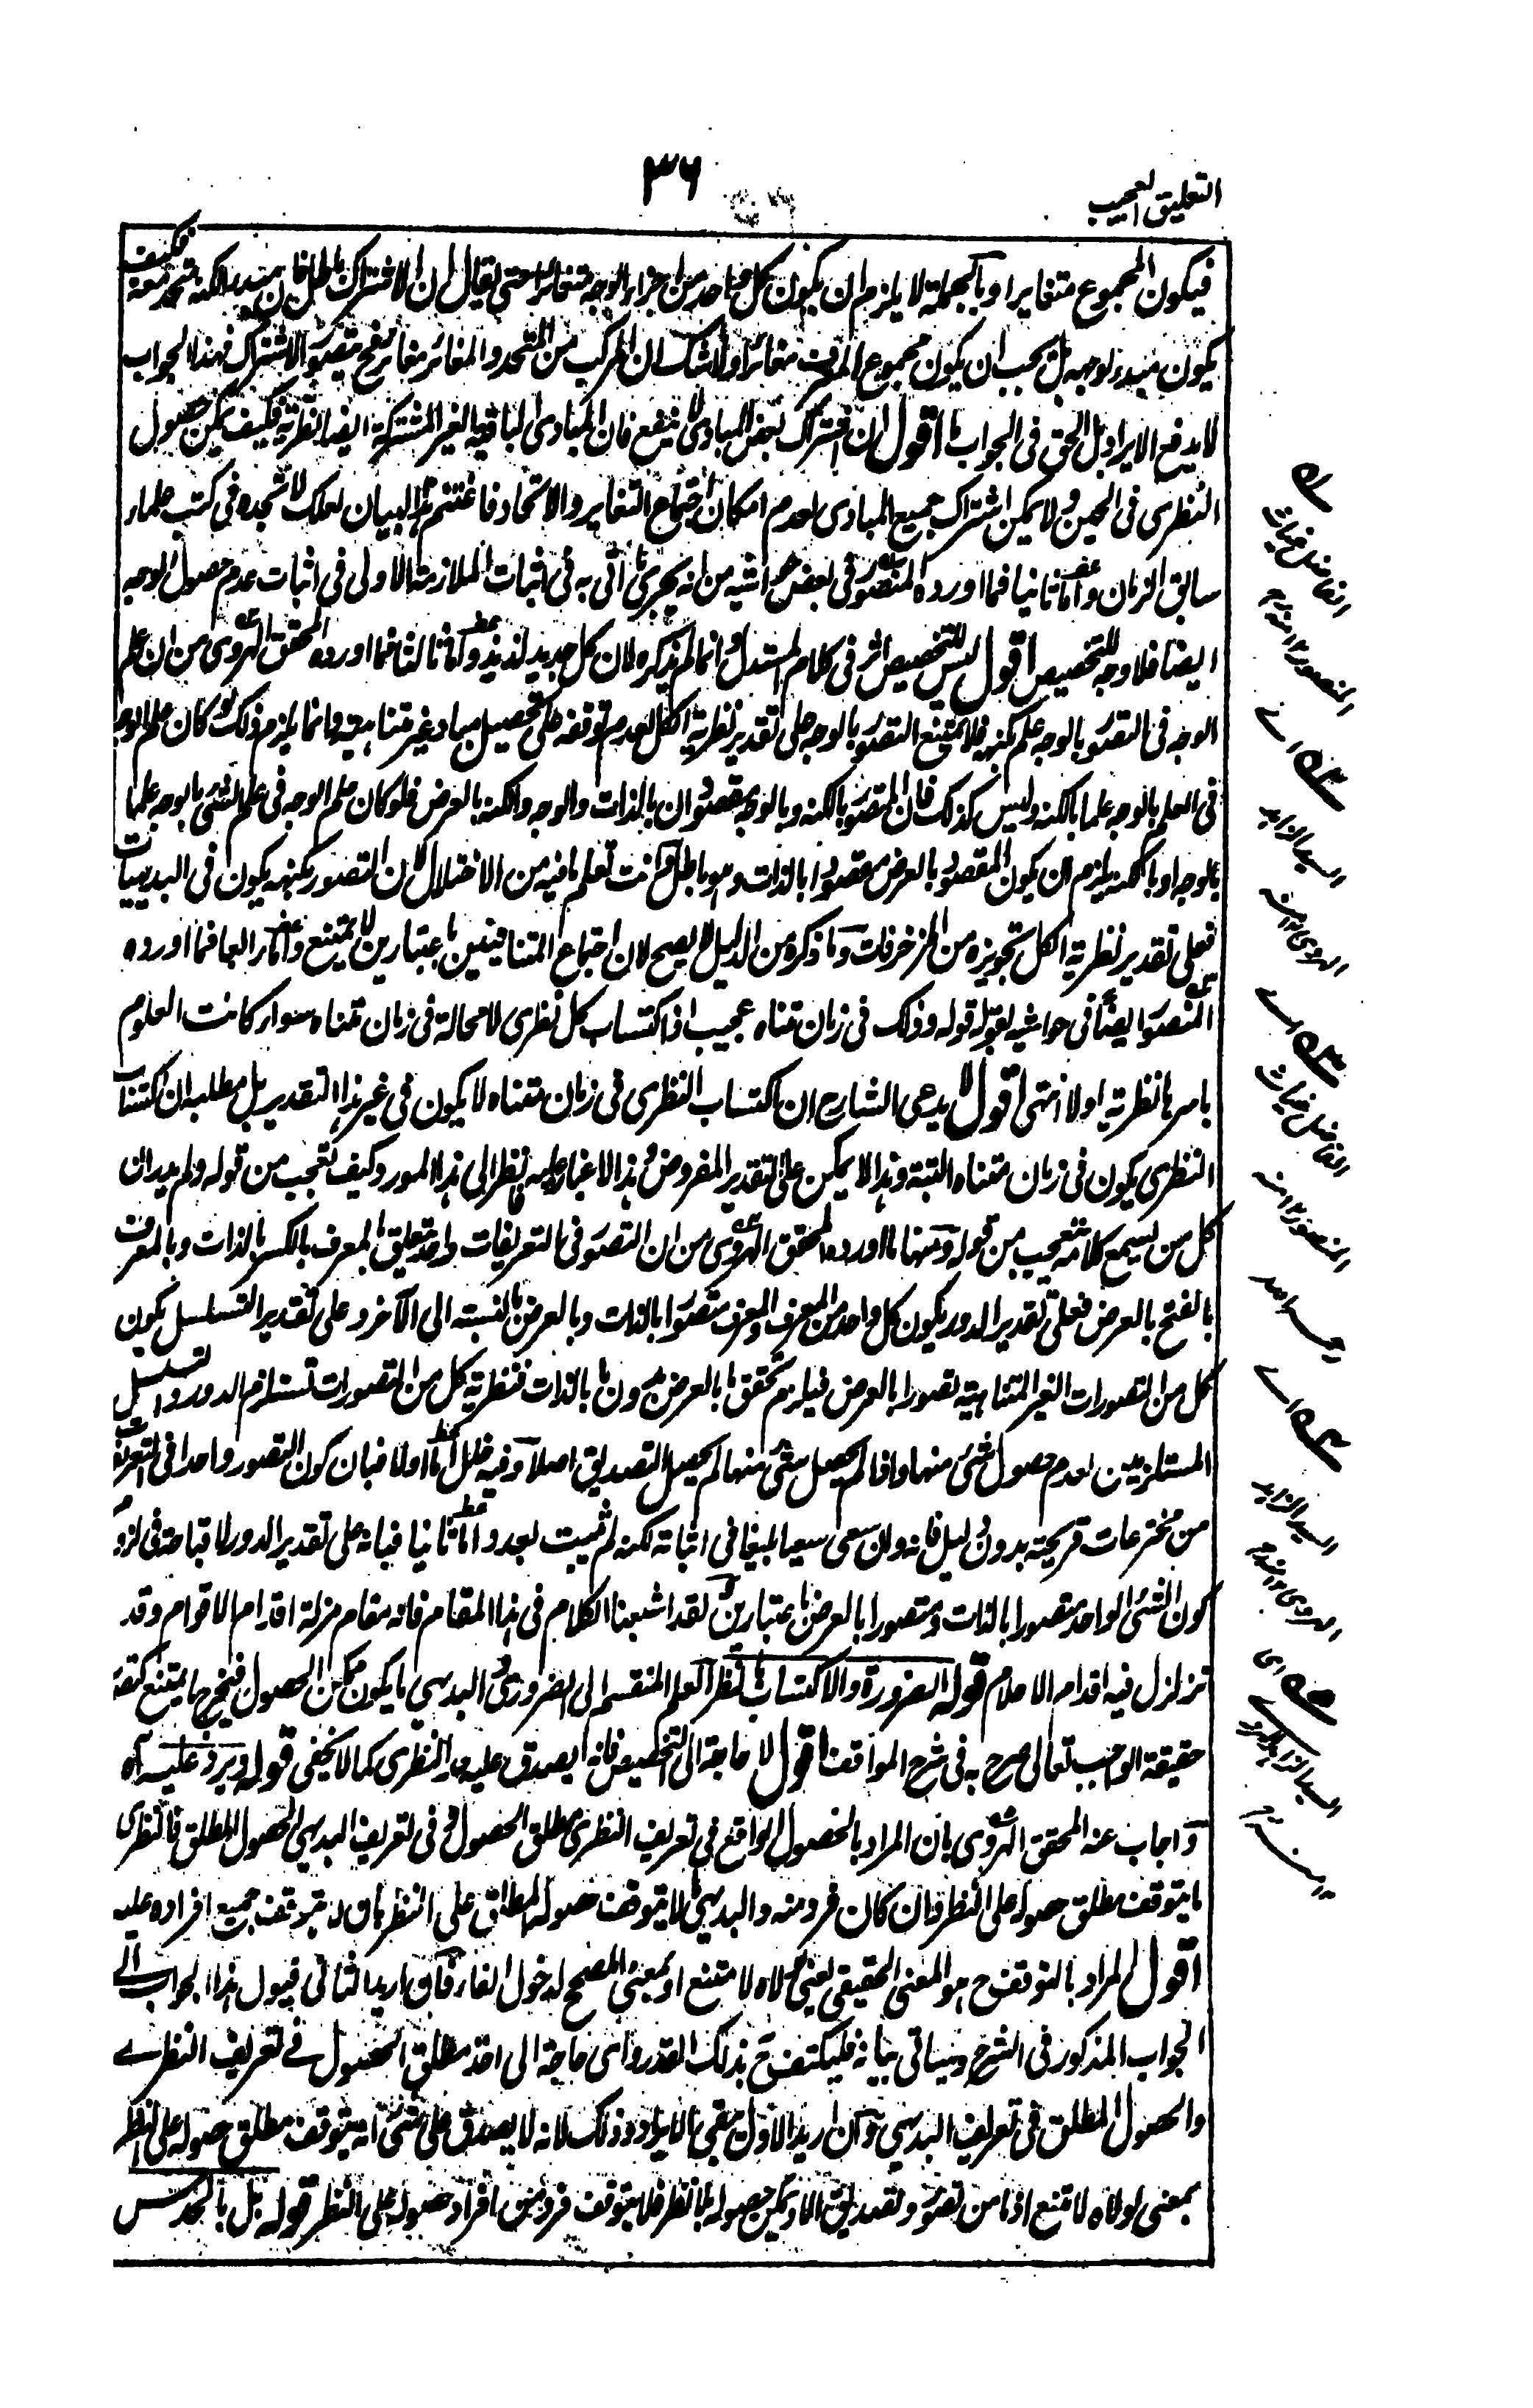 التعليق العجيب
٣٦
فيكون المجموع متغايرا وبالجملة لا يلزم ان يكون كل واحد من اجزاء الوجه متغائرا حتى يقال ان الاشتراك باطل فان مبدء الكنه متحد معه فكيف
يكون مبدء لوجهه بل يجب ان يكون مجموع المعرف مغائرا ولا شك ان المركب من المتحد والمغائر مغائر فح يتصور الاشتراك فهذا الجواب
لا يدفع الايراد بل الحق في الجواب ما اقول ان اشتراك بعض المبادى لا ينفع فان المبادى الباقية الغير المشتركة ايضا نظرية فكيف يمكن حصول
النظرى في الحين ولا يمكن اشتراك جميع المبادى لعدم امكان اجتماع التغاير والاتحاد فاغتنم هذا البيان لعلك لا تجده في كتب علماء
سابق الزمان واما ثانيا فما اورده المنصور في بعض حواشيه من انه يجرى ما اتى به في اثبات الملازمة الاولى في اثبات عدم حصول الوجه
ايضا فلا وجه للتخصيص اقول ليس للتخصيص اثر في كلام المستدل وانما لم يذكره لان كل جديد لذيذ واما ثالثا فما اورده المحقق الهروى من ان علم
الوجه في التصور بالوجه علم بكنهه فلا يمتنع التصور بالوجه على تقدير نظرية الكل لعدم توقفه على تحصيل مباد غير متناهية وانما يلزم ذلك لو كان علم الوجه
في العلم بالوجه علما بالكنه وليس كذلك فان المتصور بالكنه وبالوجه مقصودان بالذات والوجه والكنه بالعرض فلو كان علم الوجه في علم الشئ بالوجه علما
بالوجه او بالكنه يلزم ان يكون المقصود بالعرض مقصودا بالذات وهو باطل وانت تعلم ما فيه من الاختلال لان التصور بكنهه يكون في البديهيات
فعلى تقدير نظرية الكل تجويزه من المزخرفات وما ذكره من الدليل لا يصح لان اجتماع المتنافيين باعتبارين لا يمتنع واما رابعا فما اورده
المنصور ايضا في حواشيه بقوله قوله وذلك في زمان متناه عجيب اذ اكتساب كل نظرى لا محالة في زمان متناه سواء كانت العلوم
باسرها نظرية او لا انتهى اقول لا يدعى الشارح ان اكتساب النظرى في زمان متناه لا يكون في غير هذا التقدير بل مطلبه ان اكتساب
النظرى يكون في زمان متناه البتة وهذا لا يمكن على التقدير المفروض وهذا لا غبار عليه فانظر الى هذا المورد كيف تعجب من قوله ولم يدر ان
كل من يسمع كلامه تعجب من قوله ومنها ما اورده المحقق الهروى من ان التصور في التعريفات واحد متعلق بالمعرف بالكسر بالذات وبالمعرف
بالفتح بالعرض فعلى تقدير الدور يكون كل واحد من المعرف والمعرف متصورا بالذات وبالعرض بالنسبة الى الآخر وعلى تقدير التسلسل يكون
كل من التصورات الغير المتناهية تصورا بالعرض فيلزم تحقق ما بالعرض بدون ما بالذات فنظرية كل من التصورات تستلزم الدور والتسلسل
المستلزمين لعدم حصول شئ منها واذا لم يحصل شئ منها لم يحصل التصديق اصلا وفيه خلل اما اولا فبان كون التصور واحدا في التعريفات
من مخترعات قريحته بدون دليل فانه وان سعى سعيا بليغا في اثباته لكنه لم يثبت بعد واما ثانيا فبانه على تقدير الدور لا قباحة في لزوم
كون الشئ الواحد متصورا بالذات ومتصورا بالعرض باعتبارين لقد اشبعنا الكلام في هذا المقام فانه مقام مزلة اقدام الاقوام وقد
تزلزل فيه اقدام الاعلام قوله الضرورة والاكتساب بالنظر العلم المنقسم الى الضرورى البديهى ما يكون ممكن الحصول فيخرج ما يمتنع كتصور
حقيقة الواجب تعالى صرح به في شرح المواقف اقول لا حاجة الى التخصيص فانه لا يصدق عليه حد النظرى كما لا يخفى قوله ويرد عليه آه
واجاب عنه المحقق الهروى بان المراد بالحصول الواقع في تعريف النظرى مطلق الحصول وفي تعريف البديهى الحصول المطلق فالنظرى
ما يتوقف مطلق حصوله على النظر وان كان فرد منه والبديهى ما لا يتوقف حصوله المطلق على النظر بان لا يتوقف جميع افراده عليه
اقول المراد بالتوقف ح هو المعنى الحقيقى يعنى لولاه لامتنع او بمعنى المصحح لدخول الفاء فان اريد الثانى فيؤل هذا الجواب الى
الجواب المذكور في الشرح وسياتى بيانه فليكتف ح بذلك القدر واى حاجة الى اخذ مطلق الحصول في تعريف النظرے
والحصول المطلق في تعريف البديهى وان اريد الاول بقى الايراد وذلك لانه لا يصدق على شئ انه يتوقف مطلق حصوله على النظر
بمعنى لولاه لامتنع اذ ما من تصور وتصديق الا ويمكن حصوله بلا نظر فلا يتوقف فرد من افراد حصوله على النظر قوله بل بالحدس
الفاضل غياث
المنصور ١٢ منه
السيد الزاهد
الهروى ١٢ منه
الفاضل غياث
المنصور ١٢ منه
السيد الزاهد
الهروى ١٢ منه